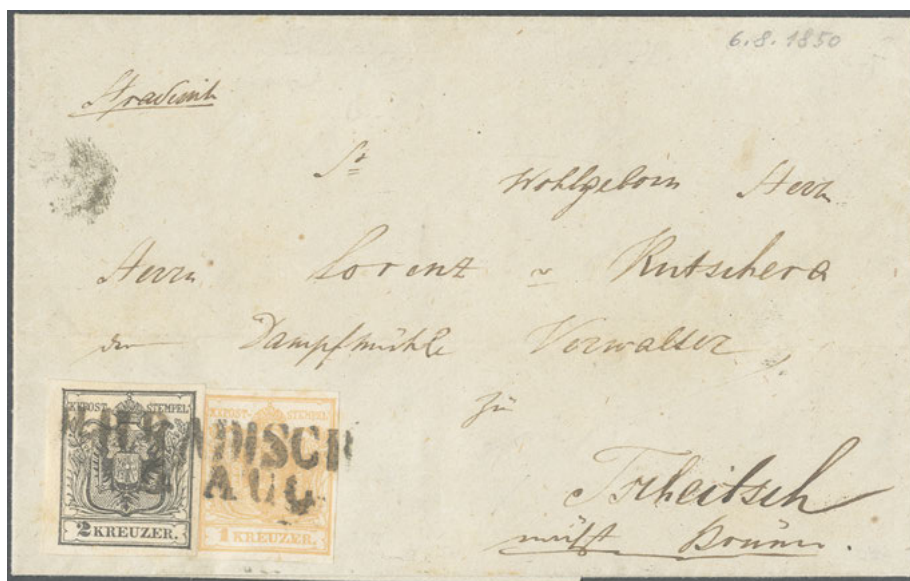 6.8.1850
Hradisch
Sr Wohlgeborn Herrn
Herrn Lorenz v Kutschera
Dampfmühle Verwalter
zu
Tscheitsch
nächst Brünn.
KKPOST-STEMPEL
2 KREUZER.
KKPOST-STEMPEL
1 KREUZER.
HRADISCH
AUG